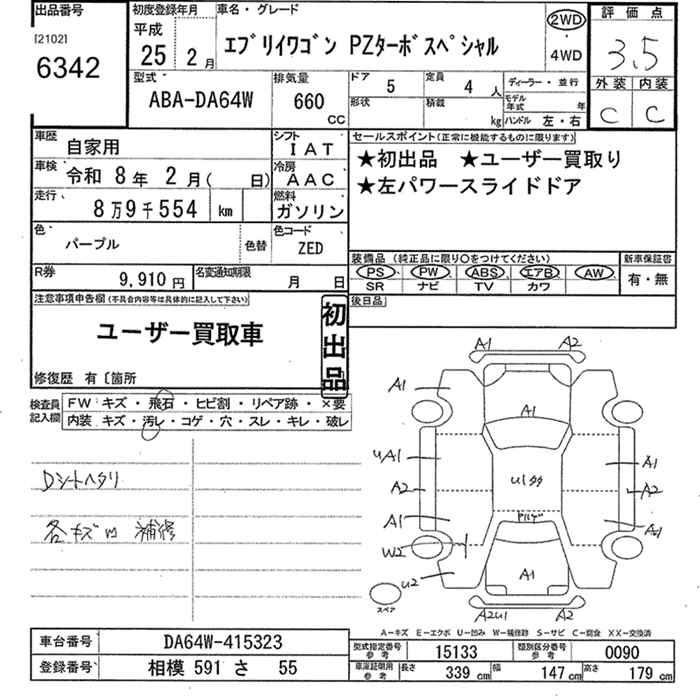 出品番号 初度登録年月 車名・グレード 評価点
[2102] 平成 2WD
6342 25年 2月 エブリイワゴン PZターボスペシャル ・ 3.5
4WD
型式 排気量 ドア 5 定員 4人 ディーラー・並行 外装 内装
ABA-DA64W 660 CC 形状 積載 kg モデル年式 年 C C
ハンドル 左・右
車歴 自家用 シフト IAT セールスポイント(正常に機能するものに限ります)
車検 令和 8年 2月( 日) 冷房 AAC ★初出品 ★ユーザー買取り
走行 8万9千554 km 燃料 ガソリン ★左パワースライドドア
色 パープル 色替 色コード ZED
装備品(純正品に限り○をつけてください) 新車保証書
R券 9,910円 名変通知期限 月 日 PS・PW・ABS・エアB・AW 有・無
SR ナビ TV カワ
注意事項申告欄(不具合内容等は具体的に記入して下さい) 初出品 後日品
ユーザー買取車
修復歴 有〔箇所
検査員記入欄 FW キズ・飛石・ヒビ割・リペア跡・×要
内装 キズ・汚レ・コゲ・穴・スレ・キレ・破レ
Dシートヘタリ
各キズ凹 補修
A1 A2
A1 A1
UA1 A1
A2 A2
A1 A1
W2
U2 A1
A2U1 A2
スペア
A-キズ E-エクボ U-凹み W-補修跡 S-サビ C-腐食 XX-交換済
車台番号 DA64W-415323 型式指定番号 参考 15133 類別区分番号 参考 0090
登録番号 相模 591 さ 55 車庫証明用 参考 長さ 339cm 幅 147cm 高さ 179cm